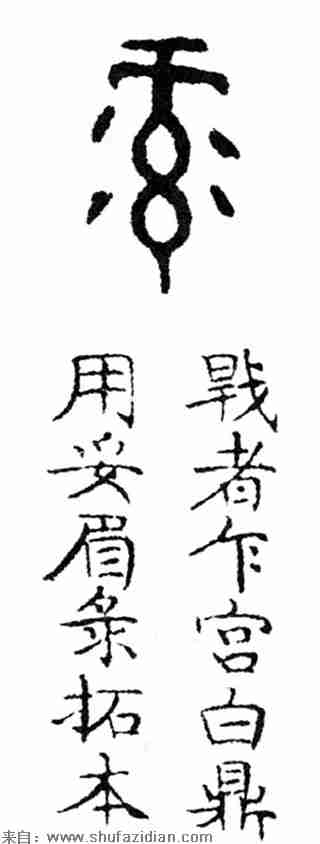 者乍宫白鼎
用妥眉彔拓本
来自：www.shufazidian.com